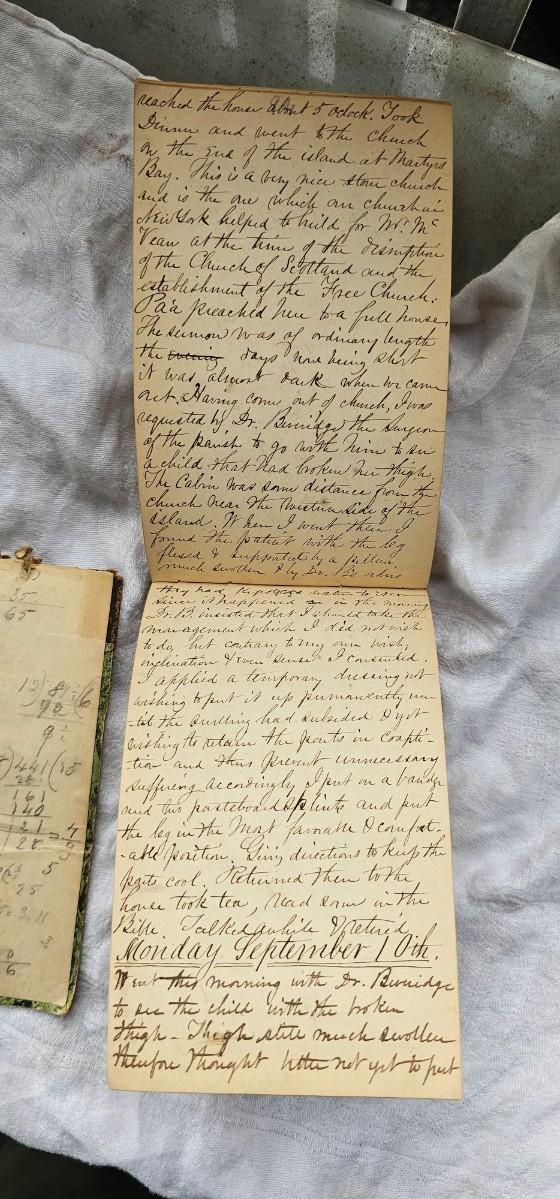 reached the house about 5 oclock. Took
Dinner and went to the church
on the End of the island at Martyrs
Bay. This is a very nice stone church
and is the one which our church in
New York helped to build for Mr. Mc
Vean at the time of the disruption
of the Church of Scotland and the
establishment of the Free Church.
Pa'a preached here to a full house
The sermon was of ordinary length
the evening days now being short
it was almost dark when we came
out. Having come out of church, I was
requested by Dr. the surgeon
of the parish to go with him to see
a child that had broken her thigh.
The Cabin was some distance from the
church near the western side of the
island. When I went there I
found the patient with the leg
flexed & supported by a pillow
much swollen & by Dr. B's orders
they had kept
since it happened in the morning
Dr. B. insisted that I should take the
management which I did not wish
to do, but contrary to my own wish,
inclination & even sense I consented.
I applied a temporary dressing not
wishing to put it up permanently un-
-til the swelling had subsided & yet
wishing to retain the parts in coapti-
-tion and thus prevent unnecessary
suffering accordingly I put on a bandge
and two pasteboard splints and put
the leg in the most favorable & comfort-
-able position. Giving directions to keep the
parts cool. Returned then to the
house took tea, read some in the
Bible. Talked awhile & retired
Monday September 10th.
Went this morning with Dr.
to see the child with the broken
thigh - Thigh still much swollen
therefore thought better not yet to put
35
65
12) 8 (6
72
9
441 (
161
140
21
28
5
25
6